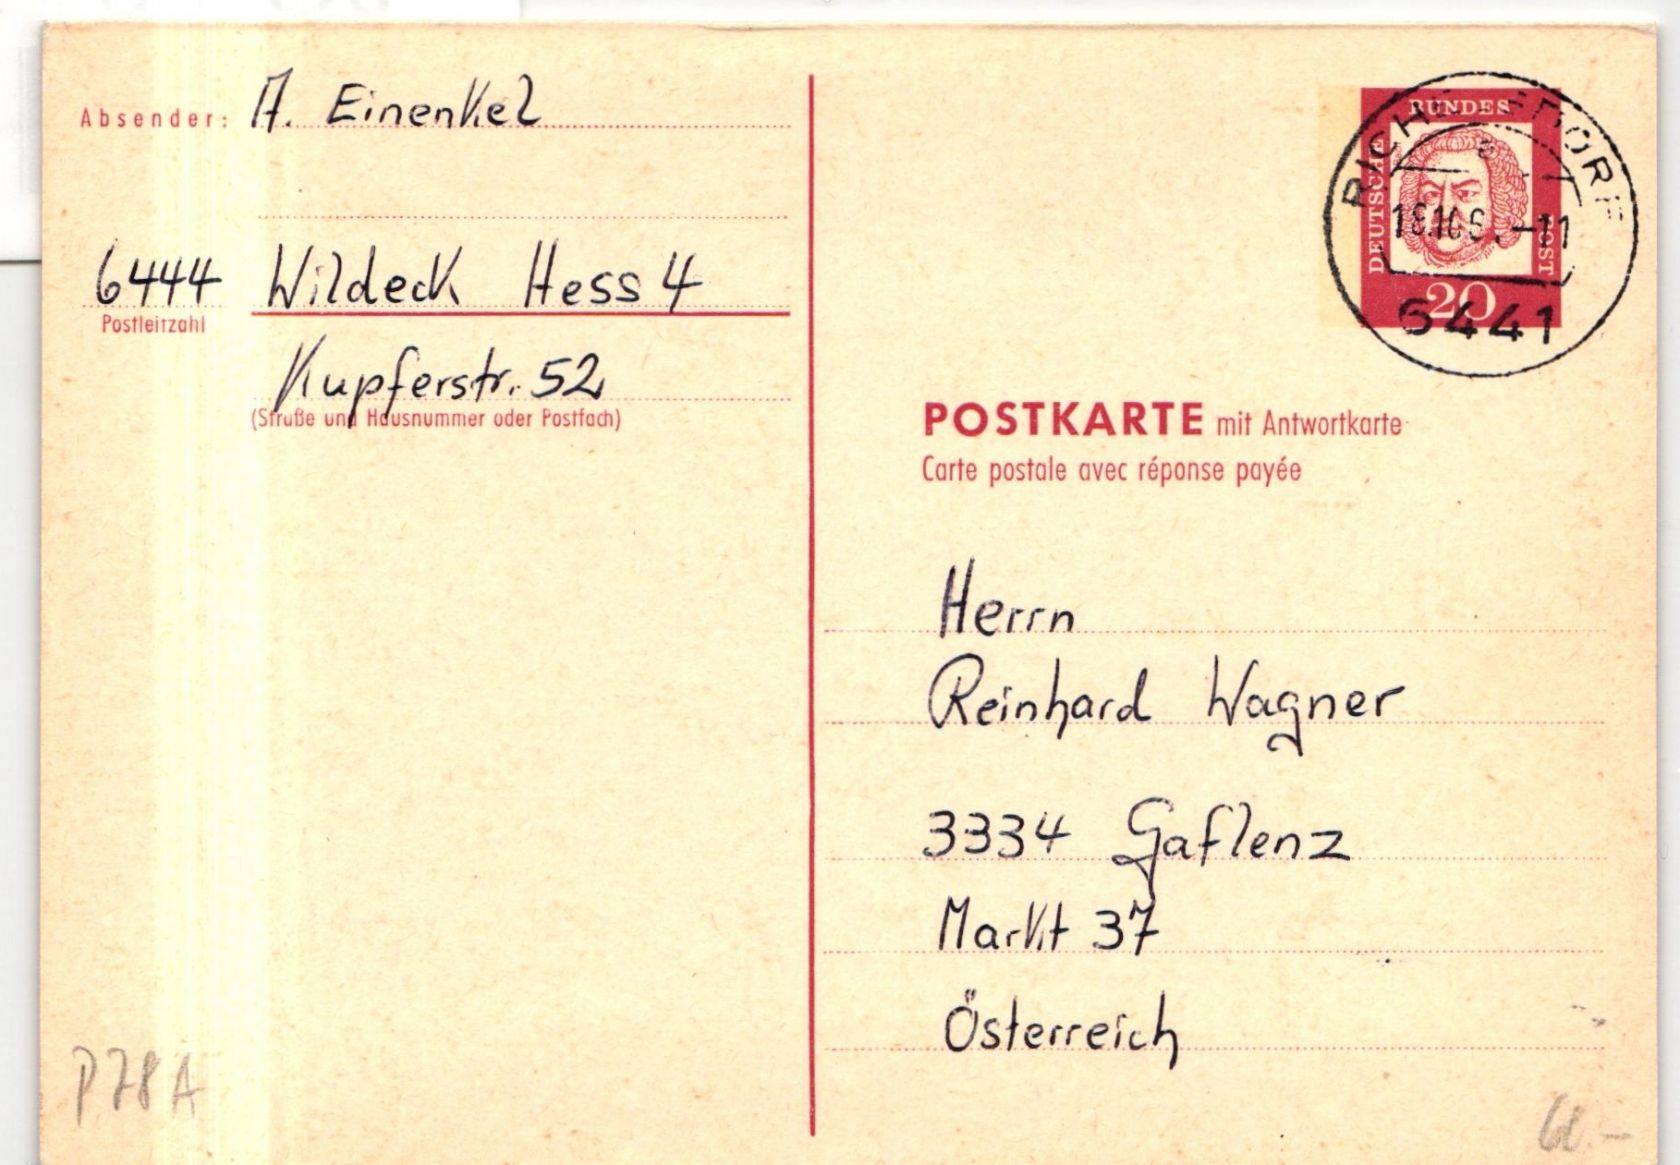 Absender: A. Einenkel
6444 Wildeck Hess 4
Postleitzahl
Kupferstr. 52
(Straße und Hausnummer oder Postfach)
P78A
DEUTSCHE BUNDES POST
20
6441
POSTKARTE mit Antwortkarte
Carte postale avec réponse payée
Herrn
Reinhard Wagner
3334 Gaflenz
Markt 37
Österreich